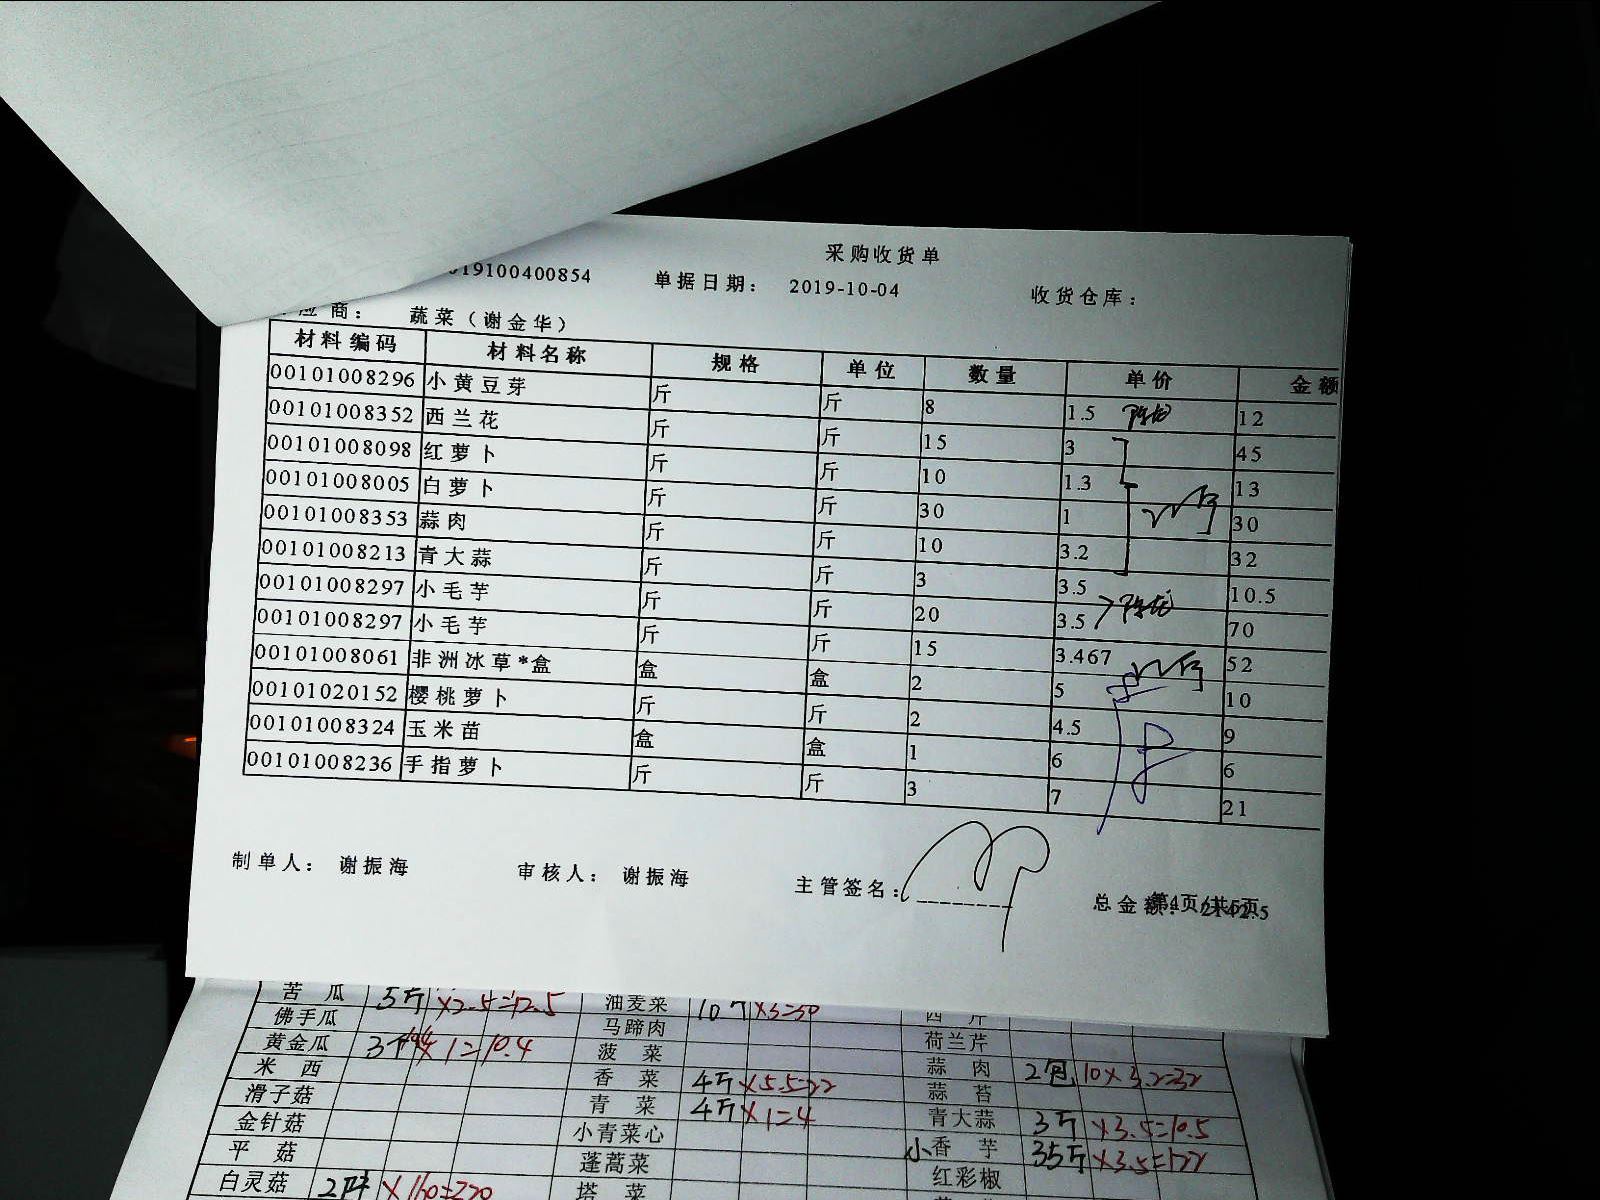 采购收货单
19100400854 单据日期： 2019-10-04 收货仓库：
应商： 蔬菜（谢金华）
材料编码 材料名称 规格 单位 数量 单价 金额
00101008296 小黄豆芽 斤 斤 8 1.5 12
00101008352 西兰花 斤 斤 15 3 45
00101008098 红萝卜 斤 斤 10 1.3 13
00101008005 白萝卜 斤 斤 30 1 30
00101008353 蒜肉 斤 斤 10 3.2 32
00101008213 青大蒜 斤 斤 3 3.5 10.5
00101008297 小毛芋 斤 斤 20 3.5 70
00101008297 小毛芋 斤 斤 15 3.467 52
00101008061 非洲冰草*盒 盒 盒 2 5 10
00101020152 樱桃萝卜 斤 斤 2 4.5 9
00101008324 玉米苗 盒 盒 1 6 6
00101008236 手指萝卜 斤 斤 3 7 21
制单人： 谢振海 审核人： 谢振海 主管签名： 总金额： 2142.5
第4页/共5页
苦瓜 5斤×2.5=12.5 油麦菜 10斤×3=30 西芹
佛手瓜 马蹄肉 荷兰芹
黄金瓜 3个 ×1=10.4 菠菜 蒜肉 2包 10×3.2=32
米西 香菜 4斤×5.5=22 蒜苔
滑子菇 青菜 4斤×1=4 青大蒜 3斤×3.5=10.5
金针菇 小青菜心 小香芋 35斤×3.5=122
平菇 蓬蒿菜 红彩椒
白灵菇 塔菜